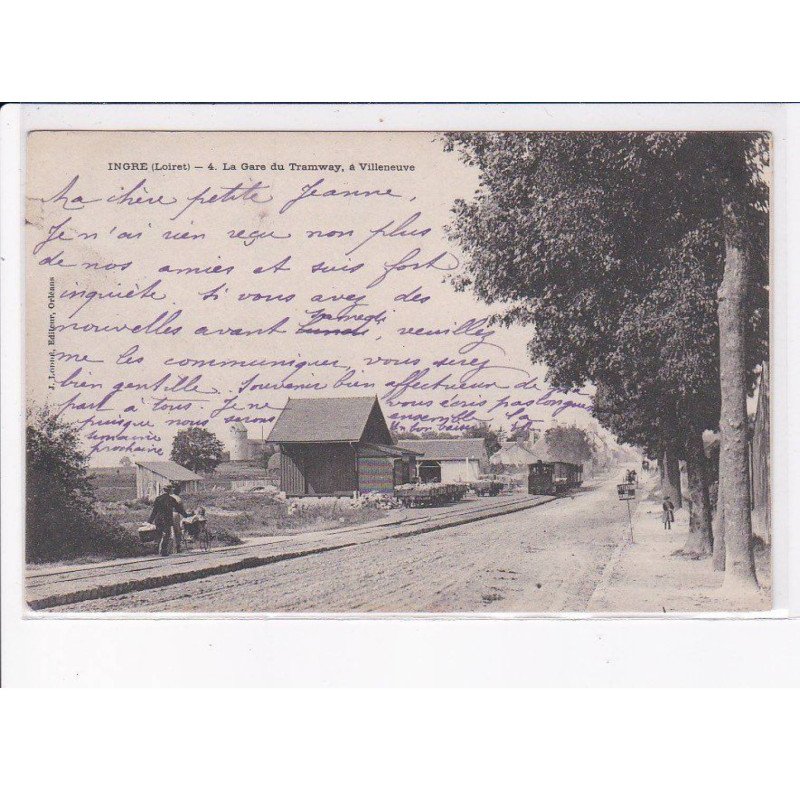 INGRE (Loiret) — 4. La Gare du Tramway, à Villeneuve
Ma chère petite Jeanne,
Je n'ai rien reçu non plus
de nos amies et suis fort
inquiète. Si vous avez des
nouvelles avant lundi samedi, veuillez
me les communiquer, vous serez
bien gentille. Souvenir bien affectueux de ma
part à tous. Je ne vous écris pas longue
puisque nous serons ensemble la
semaine Un bon baiser
prochaine
J. Loddé, Editeur, Orléans